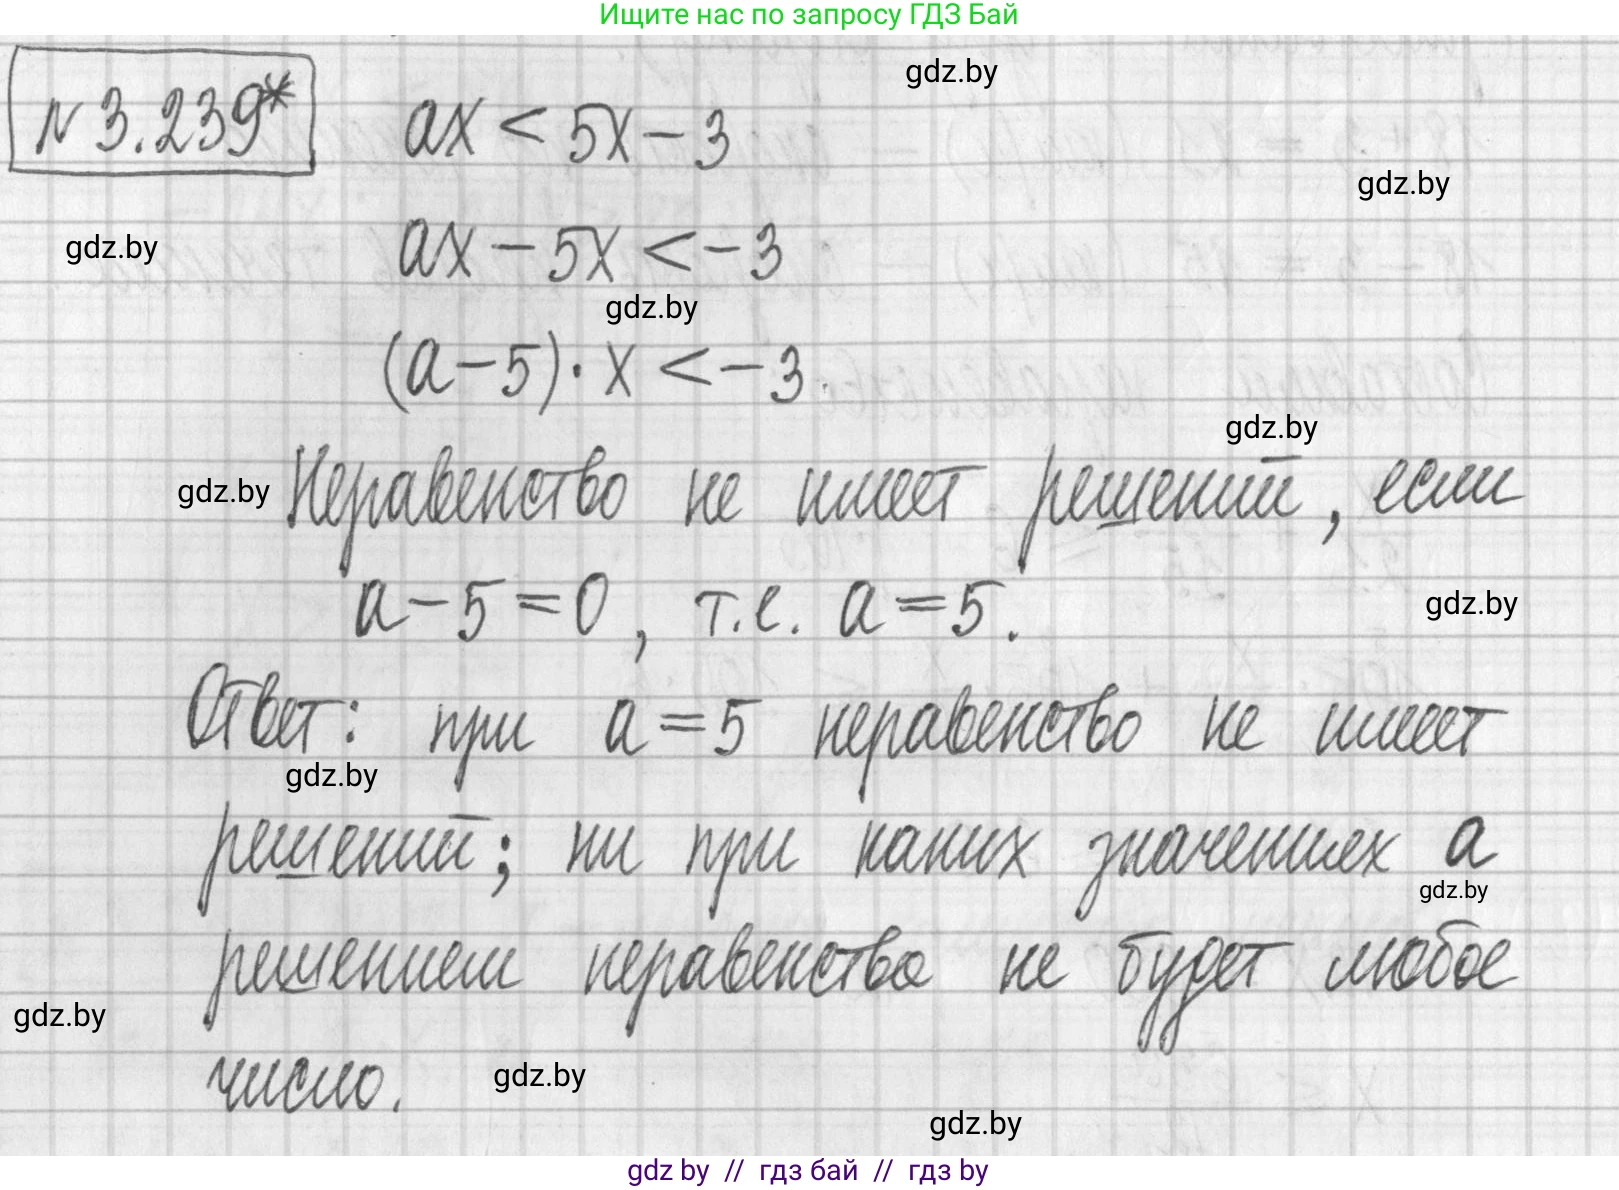 Ищите нас по запросу ГДЗ Бай
gdz.by
N 3.239* ax < 5x − 3
gdz.by
gdz.by
ax − 5x < −3
gdz.by
(a − 5) · x < −3.
gdz.by
gdz.by
Неравенство не имеет решений, если
a − 5 = 0, т.е. a = 5.
gdz.by
Ответ: при a = 5 неравенство не имеет
gdz.by
решений; ни при каких значениях a
gdz.by
решением неравенства не будет любое
gdz.by
число.
gdz.by
gdz.by
gdz by // гдз бай // гдз by